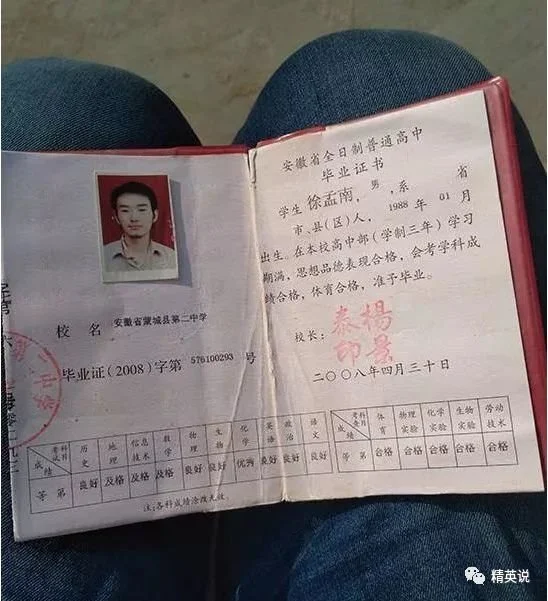 校 名 安徽省蒙城县第二中学
毕业证(2008)字第 576100293 号
考试科目 历史 地理 信息技术 数学 物理 生物 化学 英语 政治 语文
成绩
等第 良好 及格 及格 及格 良好 良好 优秀 良好 良好 良好
注:各科成绩涂改无效。
安徽省全日制普通高中
毕业证书
学生徐孟南,男,系 省
市、县(区)人,1988 年 01 月
出生。在本校高中部(学制三年)学习
期满,思想品德表现合格,会考学科成
绩合格,体育合格,准予毕业。
校长: 杨景泰印
二〇〇八年四月三十日
考查科目 体育 物理实验 化学实验 生物实验 劳动技术
成绩
等第 合格 合格 合格 合格 合格
精英说